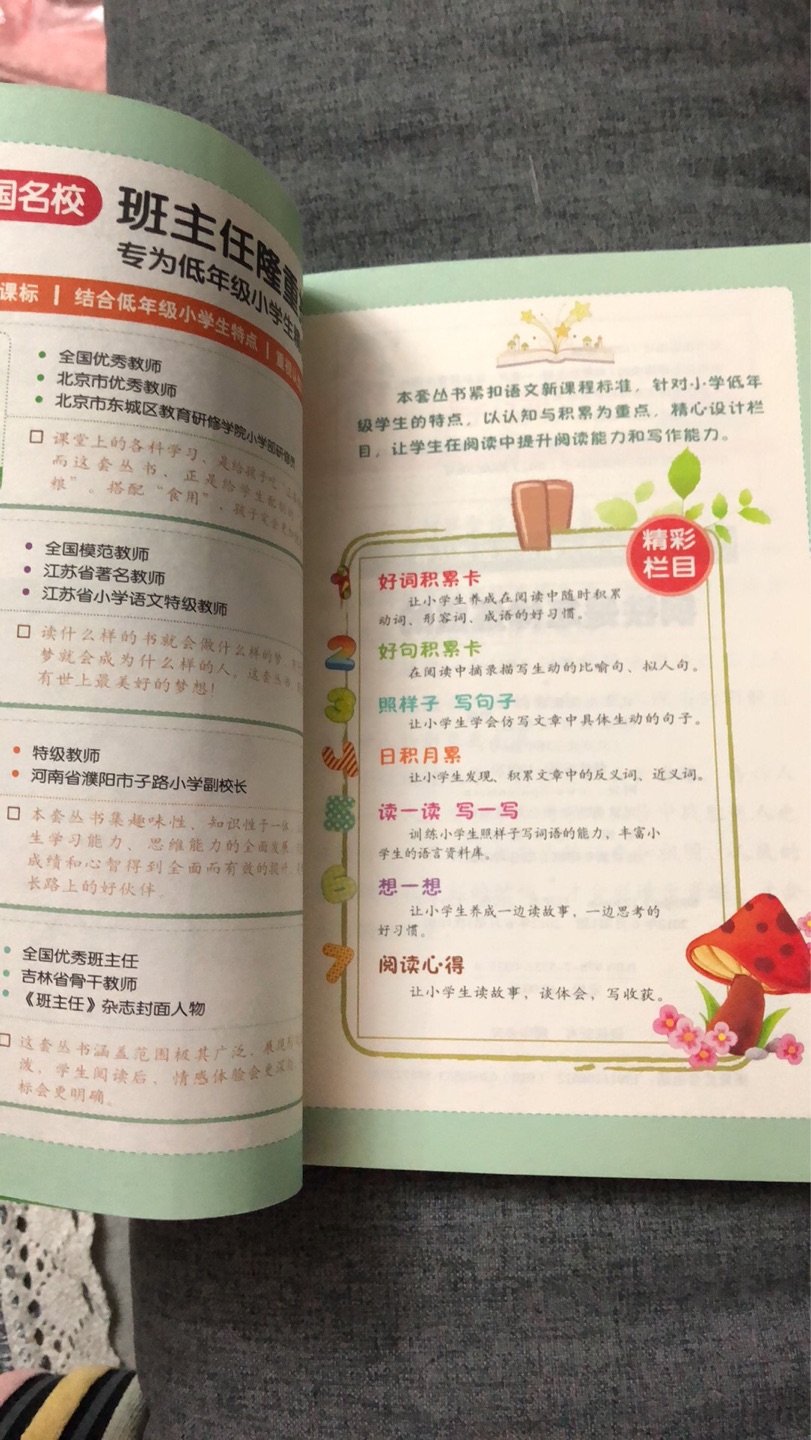 国名校
班主任隆重
专为低年级小学生
课标 | 结合低年级小学生特点 | 重视认
全国优秀教师
北京市优秀教师
北京市东城区教育研修学院小学部研修员
课堂上的各科学习、是给孩子吃
而这套丛书、正是给学生配
粮”。搭配“食用”、孩子定会更
全国模范教师
江苏省著名教师
江苏省小学语文特级教师
读什么样的书就会做什么样的梦、
梦就会成为什么样的人。这套丛书
有世上最美好的梦想！
特级教师
河南省濮阳市子路小学副校长
本套丛书集趣味性、知识性于一体、
生学习能力、思维能力的全面发展
成绩和心智得到全面而有效的提升、
长路上的好伙伴。
全国优秀班主任
吉林省骨干教师
《班主任》杂志封面人物
这套丛书涵盖范围极其广泛、展现
泼，学生阅读后、情感体验会更深
标会更明确。
本套丛书紧扣语文新课程标准，针对小学低年
级学生的特点，以认知与积累为重点，精心设计栏
目，让学生在阅读中提升阅读能力和写作能力。
精彩
栏目
1
好词积累卡
让小学生养成在阅读中随时积累
动词、形容词、成语的好习惯。
2
好句积累卡
在阅读中摘录描写生动的比喻句、拟人句。
3
照样子 写句子
让小学生学会仿写文章中具体生动的句子。
4
日积月累
让小学生发现、积累文章中的反义词、近义词。
5
读一读 写一写
训练小学生照样子写词语的能力，丰富小
学生的语言资料库。
6
想一想
让小学生养成一边读故事，一边思考的
好习惯。
7
阅读心得
让小学生读故事，谈体会，写收获。